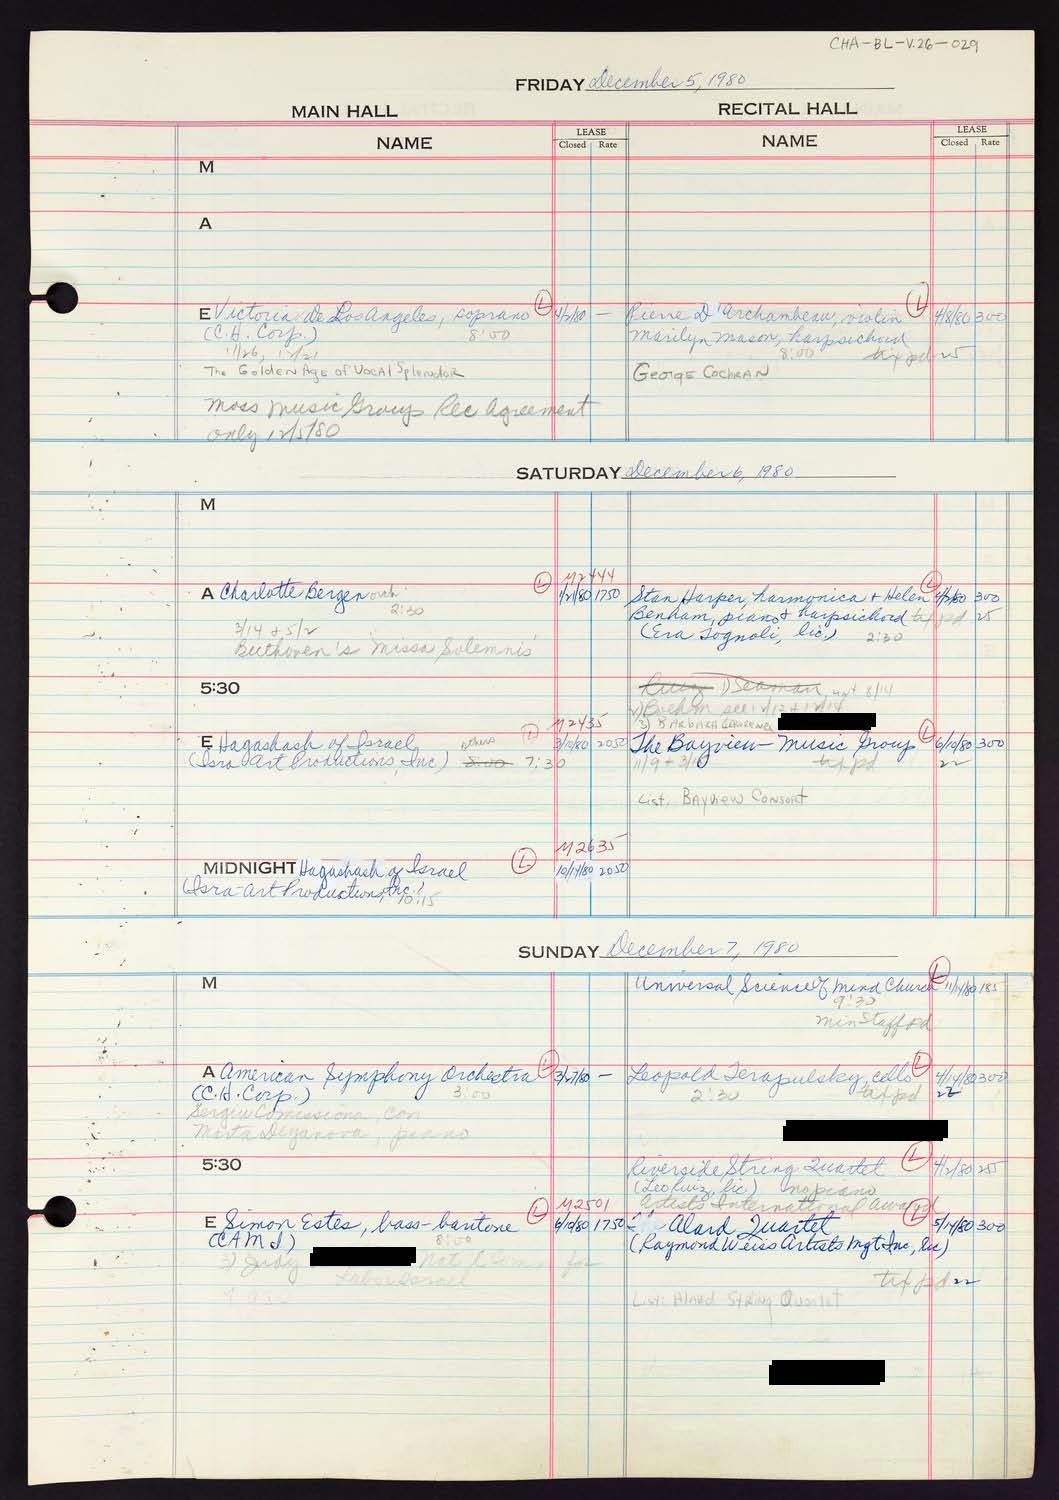 CHA-BL-V.26-029
FRIDAY December 5, 1980
MAIN HALL
RECITAL HALL
NAME
LEASE
Closed Rate
NAME
LEASE
Closed Rate
M
A
E Victoria de Los Angeles, soprano L 4/2/80 —
(C.H. Corp.) 8:00
11/26, 12/21
The Golden Age of Vocal Splendor
Moss Music Group Rec Agreement
only 12/5/80
Pierre D'Archambeau, violin L 4/8/80 300
Marilyn Mason, harpsichord
8:00 tix pd 25
George Cochran
SATURDAY December 6, 1980
M
M2444
A Charlotte Bergen orch. L 1/21/80 1750
2:30
3/14 + 5/2
Beethoven's Missa Solemnis
Stan Harper, harmonica + Helen L 300
Benham, piano + harpsichord tix pd 25
(Era Tognoli, lic.) 2:30
5:30
Seaman, 8/14
2) Boehm see 12/12 + 12/14
3)
M2435
E Hagashash of Israel L 3/10/80 2050
(Isra-Art Productions, Inc) 8:00 7:30
The Bayview Music Group L 6/10/80 300
tix pd 22
List. Bayview Consort
M2635
MIDNIGHT Hagashash of Israel L 10/14/80 2050
(Isra-Art Productions, Inc.)
10:15
SUNDAY December 7, 1980
M
Universal Science of Mind Church L 11/14/80 185
9:30
min Stafford
A American Symphony Orchestra L 3/27/80 —
(C.H. Corp.) 3:00
Sergiu Comissiona, con
Marta Deyanova, piano
Leopold Teraspulsky, cello L 4/14/80 300
2:30 tix pd 22
5:30
Riverside String Quartet L 4/2/80 25
(Leo Ruiz, lic) no piano
Artists International Award
M2501
E Simon Estes, bass-baritone L 6/10/80 1750
(CAMI) 8:00
3) Judy Nat'l Comm for
Labor Israel
7:30
Alard Quartet L 5/14/80 300
(Raymond Weiss Artists Mgt Inc, lic)
tix pd 22
List: Alard String Quartet